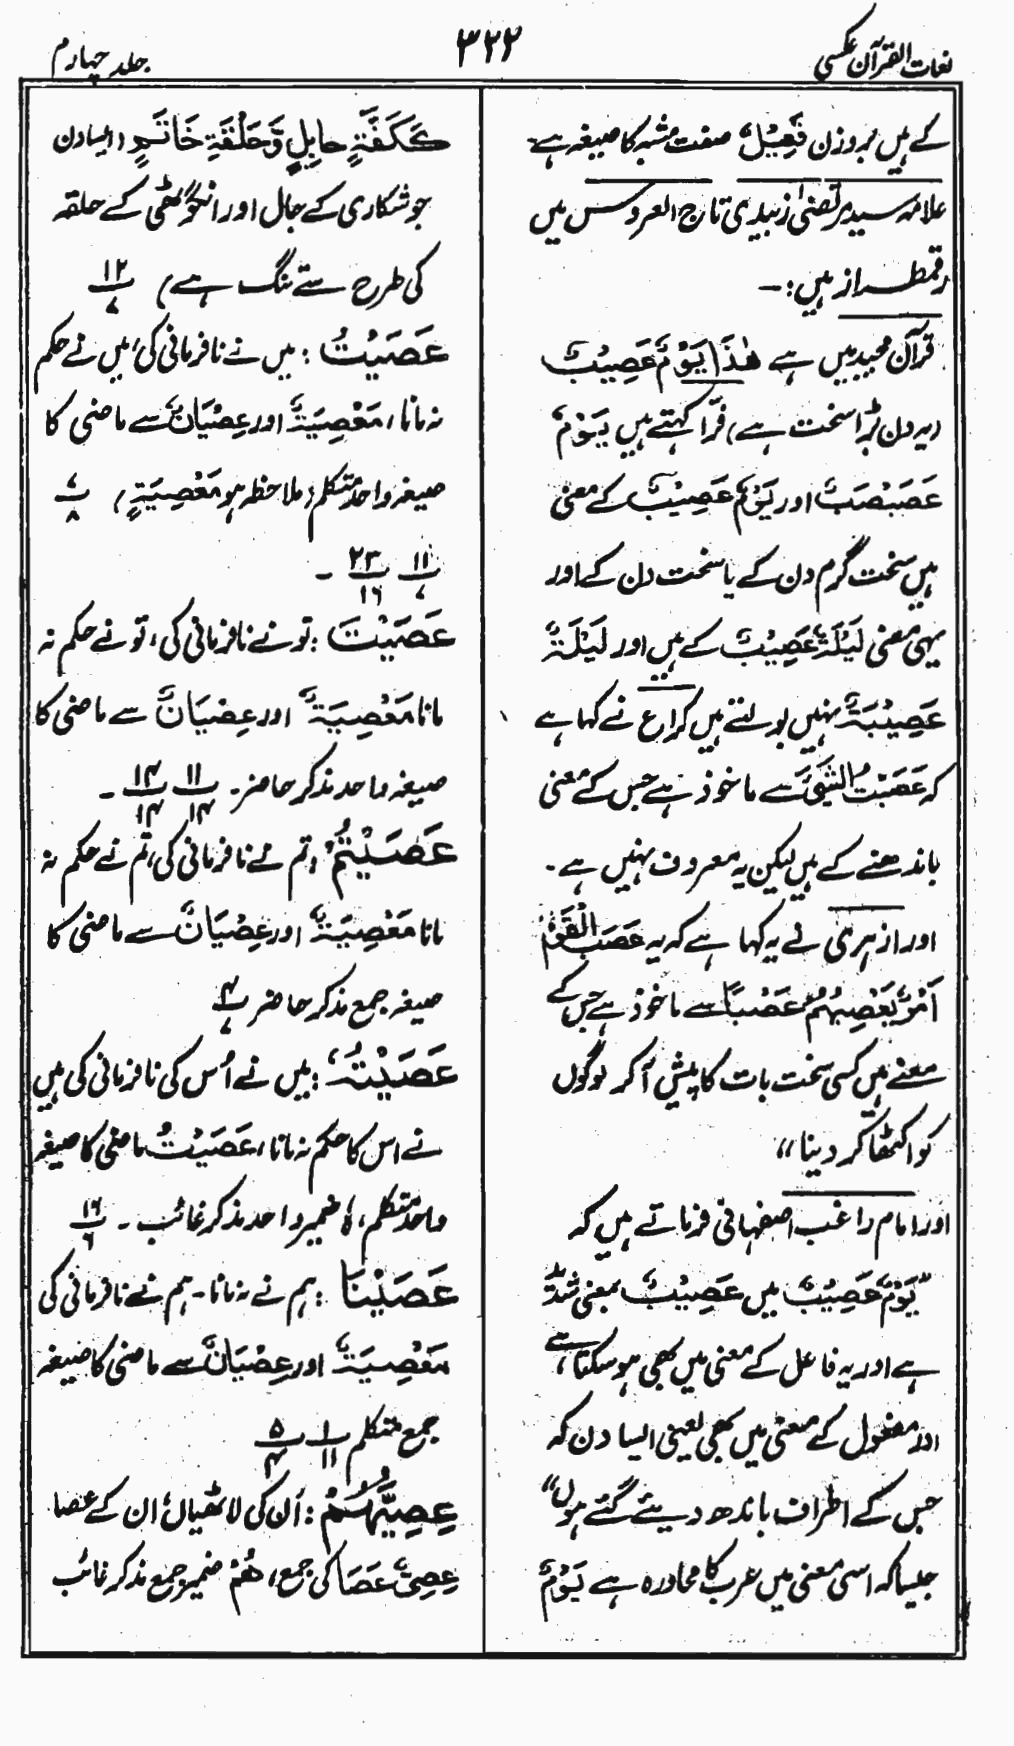 لغات القرآن عکسی
۳۲۲
جلد چہارم
کے ہیں بروزن فَعِیْلٌ صفت مشبہ کا صیغہ ہے۔
علامہ سید مرتضیٰ زبیدی تاج العروس میں
رقمطراز ہیں :-
قرآن مجید میں ہے هٰذَا يَوْمٌ عَصِيْبٌ
(یہ دن بڑا سخت ہے) فرّا کہتے ہیں يَوْمٌ
عَصَبْصَبٌ اور يَوْمٌ عَصِيْبٌ کے معنی
ہیں سخت گرم دن کے یا سخت دن کے اور
یہی معنی لَيْلَةٌ عَصِيْبٌ کے ہیں اور لَيْلَةٌ
عَصِيْبَةٌ نہیں بولتے ہیں کراع نے کہا ہے
کہ عَصَبْتُ الشَّيْءَ سے ماخوذ ہے جس کے معنی
باندھنے کے ہیں لیکن یہ معروف نہیں ہے۔
اور ازہری نے یہ کہا ہے کہ یہ عَصَبَ الْقَوْمَ
اَمْرٌ يَعْصِبُهُمْ عَصْبًا سے ماخوذ ہے جس کے
معنے ہیں کسی سخت بات کا پیش آ کر لوگوں
کو اکٹھا کر دینا ،،
اور امام راغب اصفہانی فرماتے ہیں کہ
"يَوْمٌ عَصِيْبٌ میں عَصِيْبٌ بمعنی شدید
ہے اور یہ فاعل کے معنی میں بھی ہو سکتا ہے،
اور مفعول کے معنی میں بھی یعنی ایسا دن کہ
جس کے اطراف باندھ دیئے گئے ہوں"
جیسا کہ اسی معنی میں عرب کا محاورہ ہے يَوْمٌ
كَكَفَّةِ حَابِلٍ وَّحَلْقَةِ خَاتَمٍ (ایسا دن
جو شکاری کے جال اور انگوٹھی کے حلقہ
کی طرح سے تنگ ہے) ۱۲/۷
عَصَيْتُ : میں نے نافرمانی کی، میں نے حکم
نہ مانا، مَعْصِيَةٌ اور عِصْيَانٌ سے ماضی کا
صیغہ واحد متکلم (ملاحظہ ہو مَعْصِيَةٍ) ۷/۸
۱۱/۷ ۲۳/۱۶ -
عَصَيْتَ : تو نے نافرمانی کی، تو نے حکم نہ
مانا مَعْصِيَةٌ اور عِصْيَانٌ سے ماضی کا
صیغہ واحد مذکر حاضر - ۱۱/۱۴ ۱۴/۱۴ -
عَصَيْتُمْ : تم نے نافرمانی کی، تم نے حکم نہ
مانا مَعْصِيَةٌ اور عِصْيَانٌ سے ماضی کا
صیغہ جمع مذکر حاضر ۴/۷
عَصَيْتُهٗ : میں نے اُس کی نافرمانی کی میں
نے اس کا حکم نہ مانا، عَصَيْتُ ماضی کا صیغہ
واحد متکلم، ہٗ ضمیر واحد مذکر غائب - ۱۶/۶
عَصَيْنَا : ہم نے نہ مانا - ہم نے نافرمانی کی
مَعْصِيَةٌ اور عِصْيَانٌ سے ماضی کا صیغہ
جمع متکلم ۱/۱۱ ۵/۴
عِصِيُّهُمْ : اُن کی لاٹھیاں، ان کے عصا
عِصِيٌّ عَصَا کی جمع، هُمْ ضمیر جمع مذکر غائب